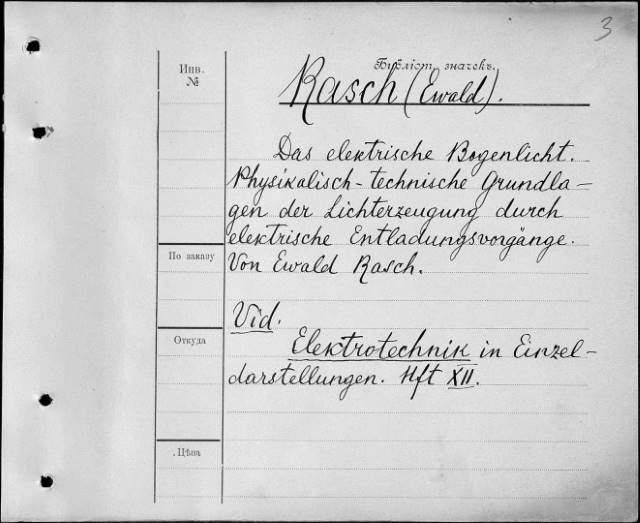 3
Инв.
№
Библіот. значекъ.
Rasch (Ewald).
Das elektrische Bogenlicht.
Physikalisch-technische Grundla-
gen der Lichterzeugung durch
elektrische Entladungsvorgänge.
По заказу
Von Ewald Rasch.
Vid.
Откуда
Elektrotechnik in Einzel-
darstellungen. Hft XII.
Цѣна